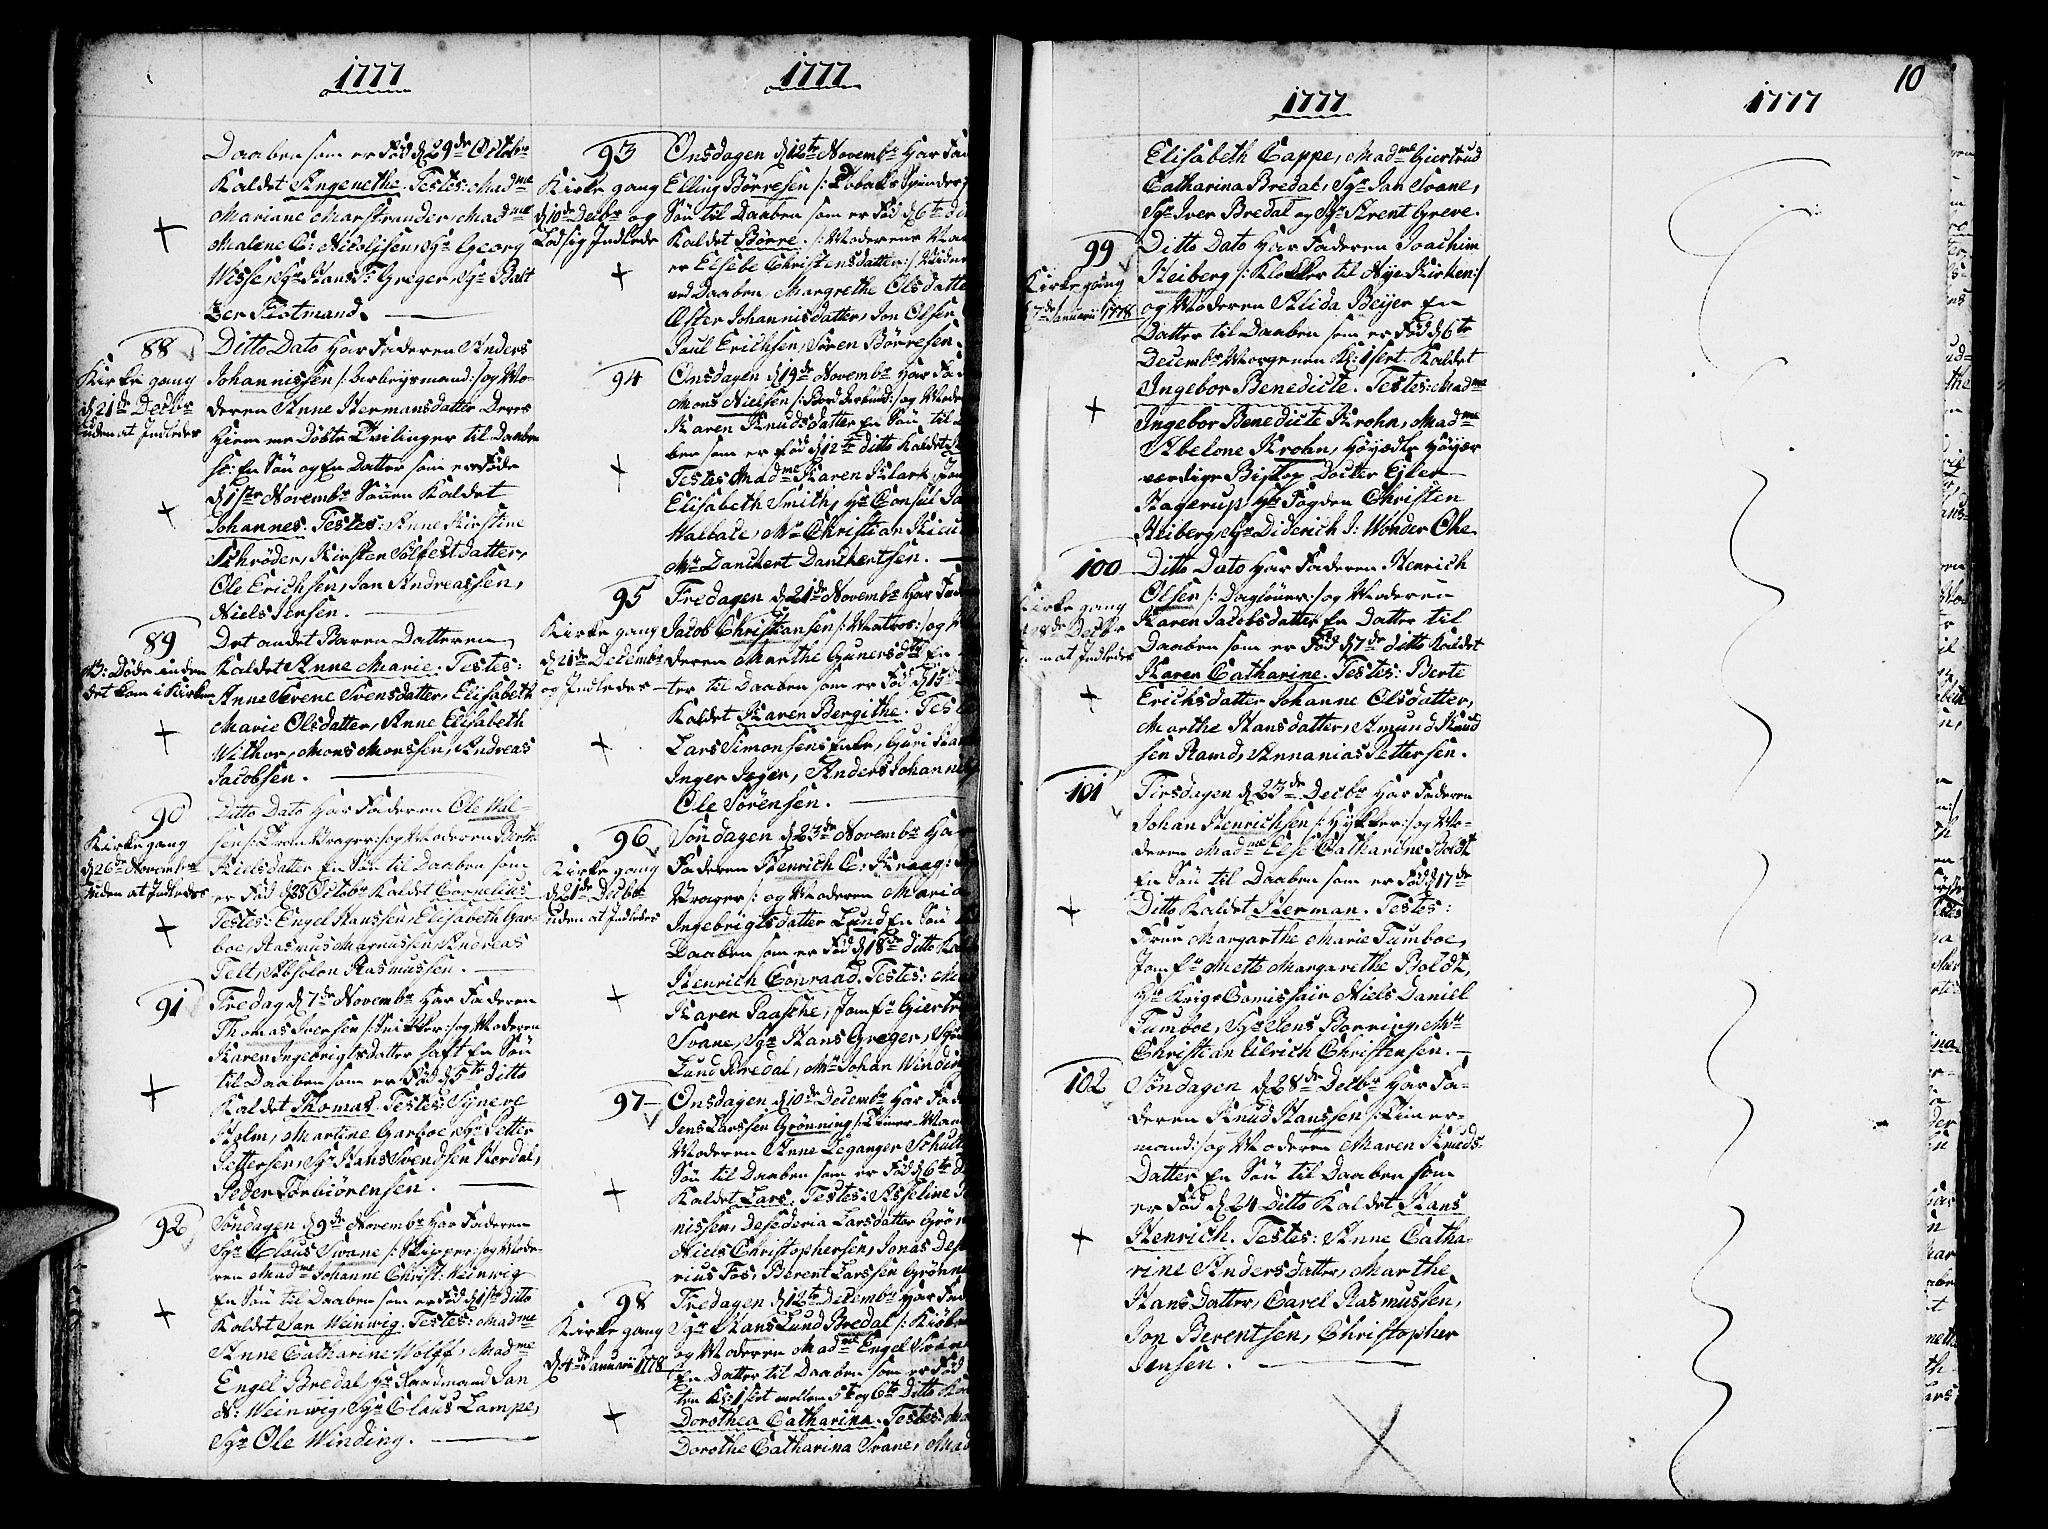 1777
Daaben som er Fød d 29de Octobr
Kaldet Angenethe. Testes: Madme
Mariane Marstrander, Madme
Malene C: Nicolisen, Sr Georg
Wesse, Sr Hans T: Greger, Sr Balt
zer Flotmand.
88
Kirke gang
d 21de Decbr
uden at Indledes
Ditto Dato Har Faderen Anders
Johannissen /: Arbeysmand :/ og Mo-
deren Anne Hermansdatter Deres
Hiemme Døbte Tvilinger til Daaben
sc: En Søn og En Datter som er Føde
d 1ste Novembr Sønen Kaldet
Johannes. Testes: Anne Kirstine
Schrøder, Kirsten Solfestdatter,
Ole Erichsen, Jan Andreassen,
Niels Jensen.
89
NB: Døde inden
det kom i Kirken
Det andet Baren Datteren
Kaldet Anne Marie. Testes:
Anne Serene Svensdatter, Elisabeth
Marie Olsdatter, Anne Elisabeth
Withor, Mons Monssen, Andreas
Jacobsen.
90
Kirke gang
d 26de Novembr
uden at Indledes
Ditto Dato Har Faderen Ole Wal-
sen /: Drager :/ og Moderen Berthe
Nielsdatter En Søn til Daaben som
er Fød d 28 Octobr Kaldet Cornelius
Testes: Engel Hanssen, Elisabeth Gar-
boe, Rasmus Magnussen, Andreas
Telt, Absolon Rasmussen.
91
Fredag d 7de Novembr Har Faderen
Thomas Svensen /: Snikker :/ og Moderen
Karen Ingebrigtsdatter haft En Søn
til Daaben som er Fød d 5te ditto
Kaldet Thomas. Testes: Syneve
Holm, Martine Garboe, Sr Petter
Pettersen, Sr Hans Svendsen Hordal,
Peder Torbiörensen.
92
Søndagen d 9de Novembr Har Faderen
Sr Claus Svane /: Skipper :/ og Mode-
ren Madme Johanne Christ: Weinwig
En Søn til Daaben som er Fød d 1ste ditto
Kaldet Jan Weinwig. Testes: Madme
Anne Catharine Wolff, Madme
Engel Bredal, Hr Raadmand Jan
N: Weinwig, Sr Claus Lampe,
Sr Ole Winding.
1777
93
Kirke gang
d 10de Decbr og
Lod sig Indlede
Onsdagen d 12te Novembr Har Fad
Elling Børresen /: Tobaks Spinder
Søn til Daaben som er Fød d 6te di
Kaldet Børre. /: Moderens Na
er Elsebe Christensdatter :/
ved Daaben Margrethe Olsdatte
Ester Johannisdatter, Jon Olsen
Paul Erichsen, Søren Børresen.
94
Onsdagen d 19de Novembr Har Fad
Mons Nielsen /: Bord Arbeid :/ og Mode
Karen Knudsdatter En Søn til
ben som er Fød d 12te ditto Kaldet
Testes Madme Karen Klark, Jom
Elisabeth Smith, Hr Consul
Wallace, Mr Christian
Mr Danckert Danckertsen.
95
Kirke gang
d 21de Decembr
og Indledes
Fredagen d 21de Novembr Har Fade
Jacob Christiansen /: Matros :/ og M
deren Marthe Gunersdtr En
ter til Daaben som er Fød d 15d
Kaldet Karen Bergithe. Test
Lars Simonsens Enke, Guri
Inger Jeger, Anders Johanne
Ole Sørensen.
96
Kirke gang
d 21de Decbr
uden at Indledes
Søndagen d 23de Novembr Har
Faderen Henrich C: Kraag:
Drager :/ og Moderen Maria
Ingebrigtsdatter Lund En Søn
Daaben som er Fød d 18de ditto Kal
Henrich Conraad. Testes: M
Karen Paasche, Jomfr Giertr
Svane, Sr Hans Greger, Sr
Lund Bredal, Mr Johan Winding
97
Onsdagen d 10de Decembr Har Fade
Jens Larssen Grønning /: Timer Man
Moderen Anne Leganger Schult
Søn til Daaben som er Fød d 6te d
Kaldet Lars. Testes: Asseline
nissen, Desederia Larsdatter Grøn
Niels Christophersen, Jonas Dese
rius Fos, Berent Larssen Grønn
98
Kirke gang
d 4de Januarii 1778
Fredagen d 12te Decembr Har Fad
Sr Hans Lund Bredal /: Kiøbm
og Moderen Madme Engel Svane
En Datter til Daaben som er Fød
ten Kl: 1 slet mellem 5te og 6te Ditto Kal
Dorothea Catharina. Testes: M
Dorothe Catharina Svane, Mad
1777
Elisabeth Cappe, Madme Giertrud
Catharina Bredal, Sr Jan Svane,
Sr Iver Bredal og Sr Arent Greve.
99
Kirke gang
7de Januarii 1778
Ditto Dato Har Faderen Joachim
Heiberg /: Klokker til Nye Kirken :/
og Moderen Alida Beyer En
Datter til Daaben som er Fød d 6te
Decembr Morgenen Kl: 1 slet. Kaldet
Ingebor Benedicte. Testes: Madme
Ingebor Benedicte Krohn, Madme
Abelone Krohn, Høyædle Høyær
værdige Biskop Docter Ejler
Hagerup, Hr Fogden Christen
Heiberg, Sr Diderich J: Wonder Ohe
100
Kirke gang
28de Decbr
n at Indledes
Ditto Dato Har Faderen Henrich
Olsen /: Dagløner :/ og Moderen
Karen Jacobsdatter En Datter til
Daaben som er Fød d 7de ditto Kaldet
Karen Catharine. Testes: Berte
Erichsdatter Johanne Olsdatter,
Marthe Hansdatter, Amund Knud
sen Ramd, Annanias Pettersen.
101
Tirsdagen d 23de Decbr Har Faderen
Johan Henrichsen /: Hykker :/ og Mo-
deren Madme Else Catharine Boldt
En Søn til Daaben som er Fød d 17de
Ditto Kaldet Herman. Testes:
Frue Margarthe Marie Tumboe,
Jomfr Mette Margarethe Boldt,
Hr Krigs Comissair Niels Daniel
Tumboe, Sr Jens Borring, Mr
Christian Ulrich Christensen.
102
Søndagen d 28de Decbr Har Fa-
deren Knud Hanssen /: Timer-
mand :/ og Moderen Maren Knuds-
Datter En Søn til Daaben som
er Fød d 24 Ditto Kaldet Hans
Henrich. Testes: Anne Catha-
rine Andersdatter, Marthe
Hans Datter, Carel Rasmussen,
Jon Berentsen, Christopher
Jensen.
1777
10